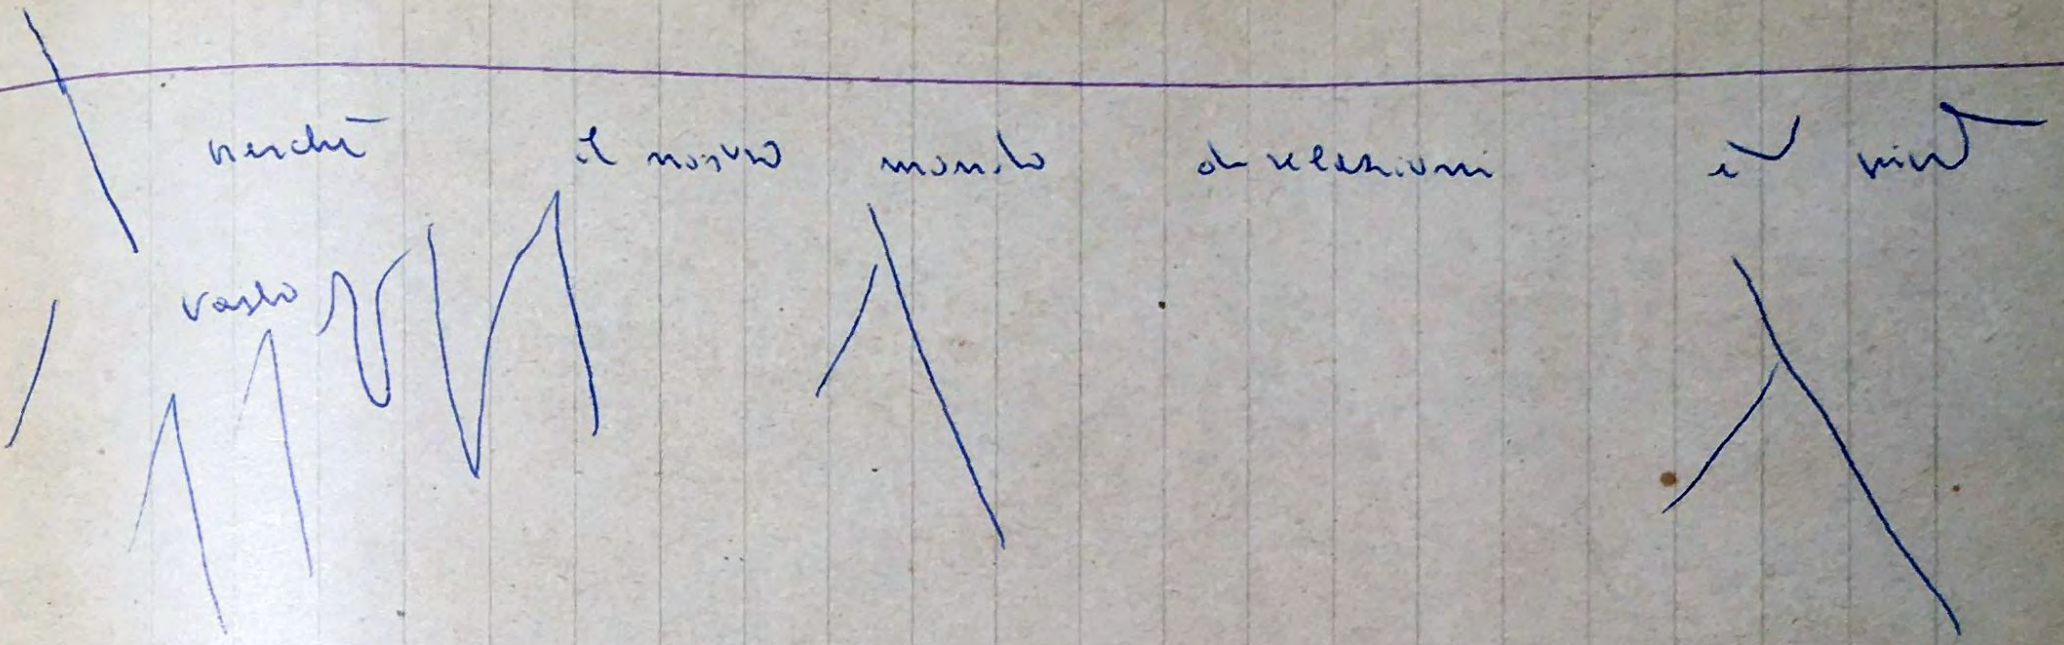 perché il nostro mondo di relazioni è più
vasto